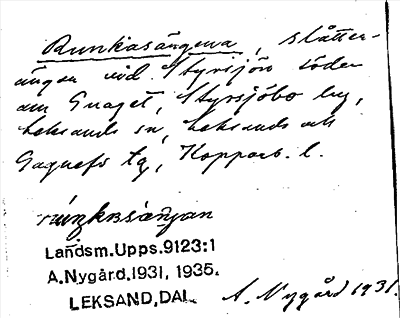 Runkasängena, slåtter-
ängar vid Styrsjön söder
om Gnaget, Styrsjöbo by,
Leksands sn, Leksands och
Gagnefs tg, Kopparb. l.
Landsm.Upps.9123:1
A.Nygård.1931, 1935.
LEKSAND,DAL.
A. Nygård 1931.